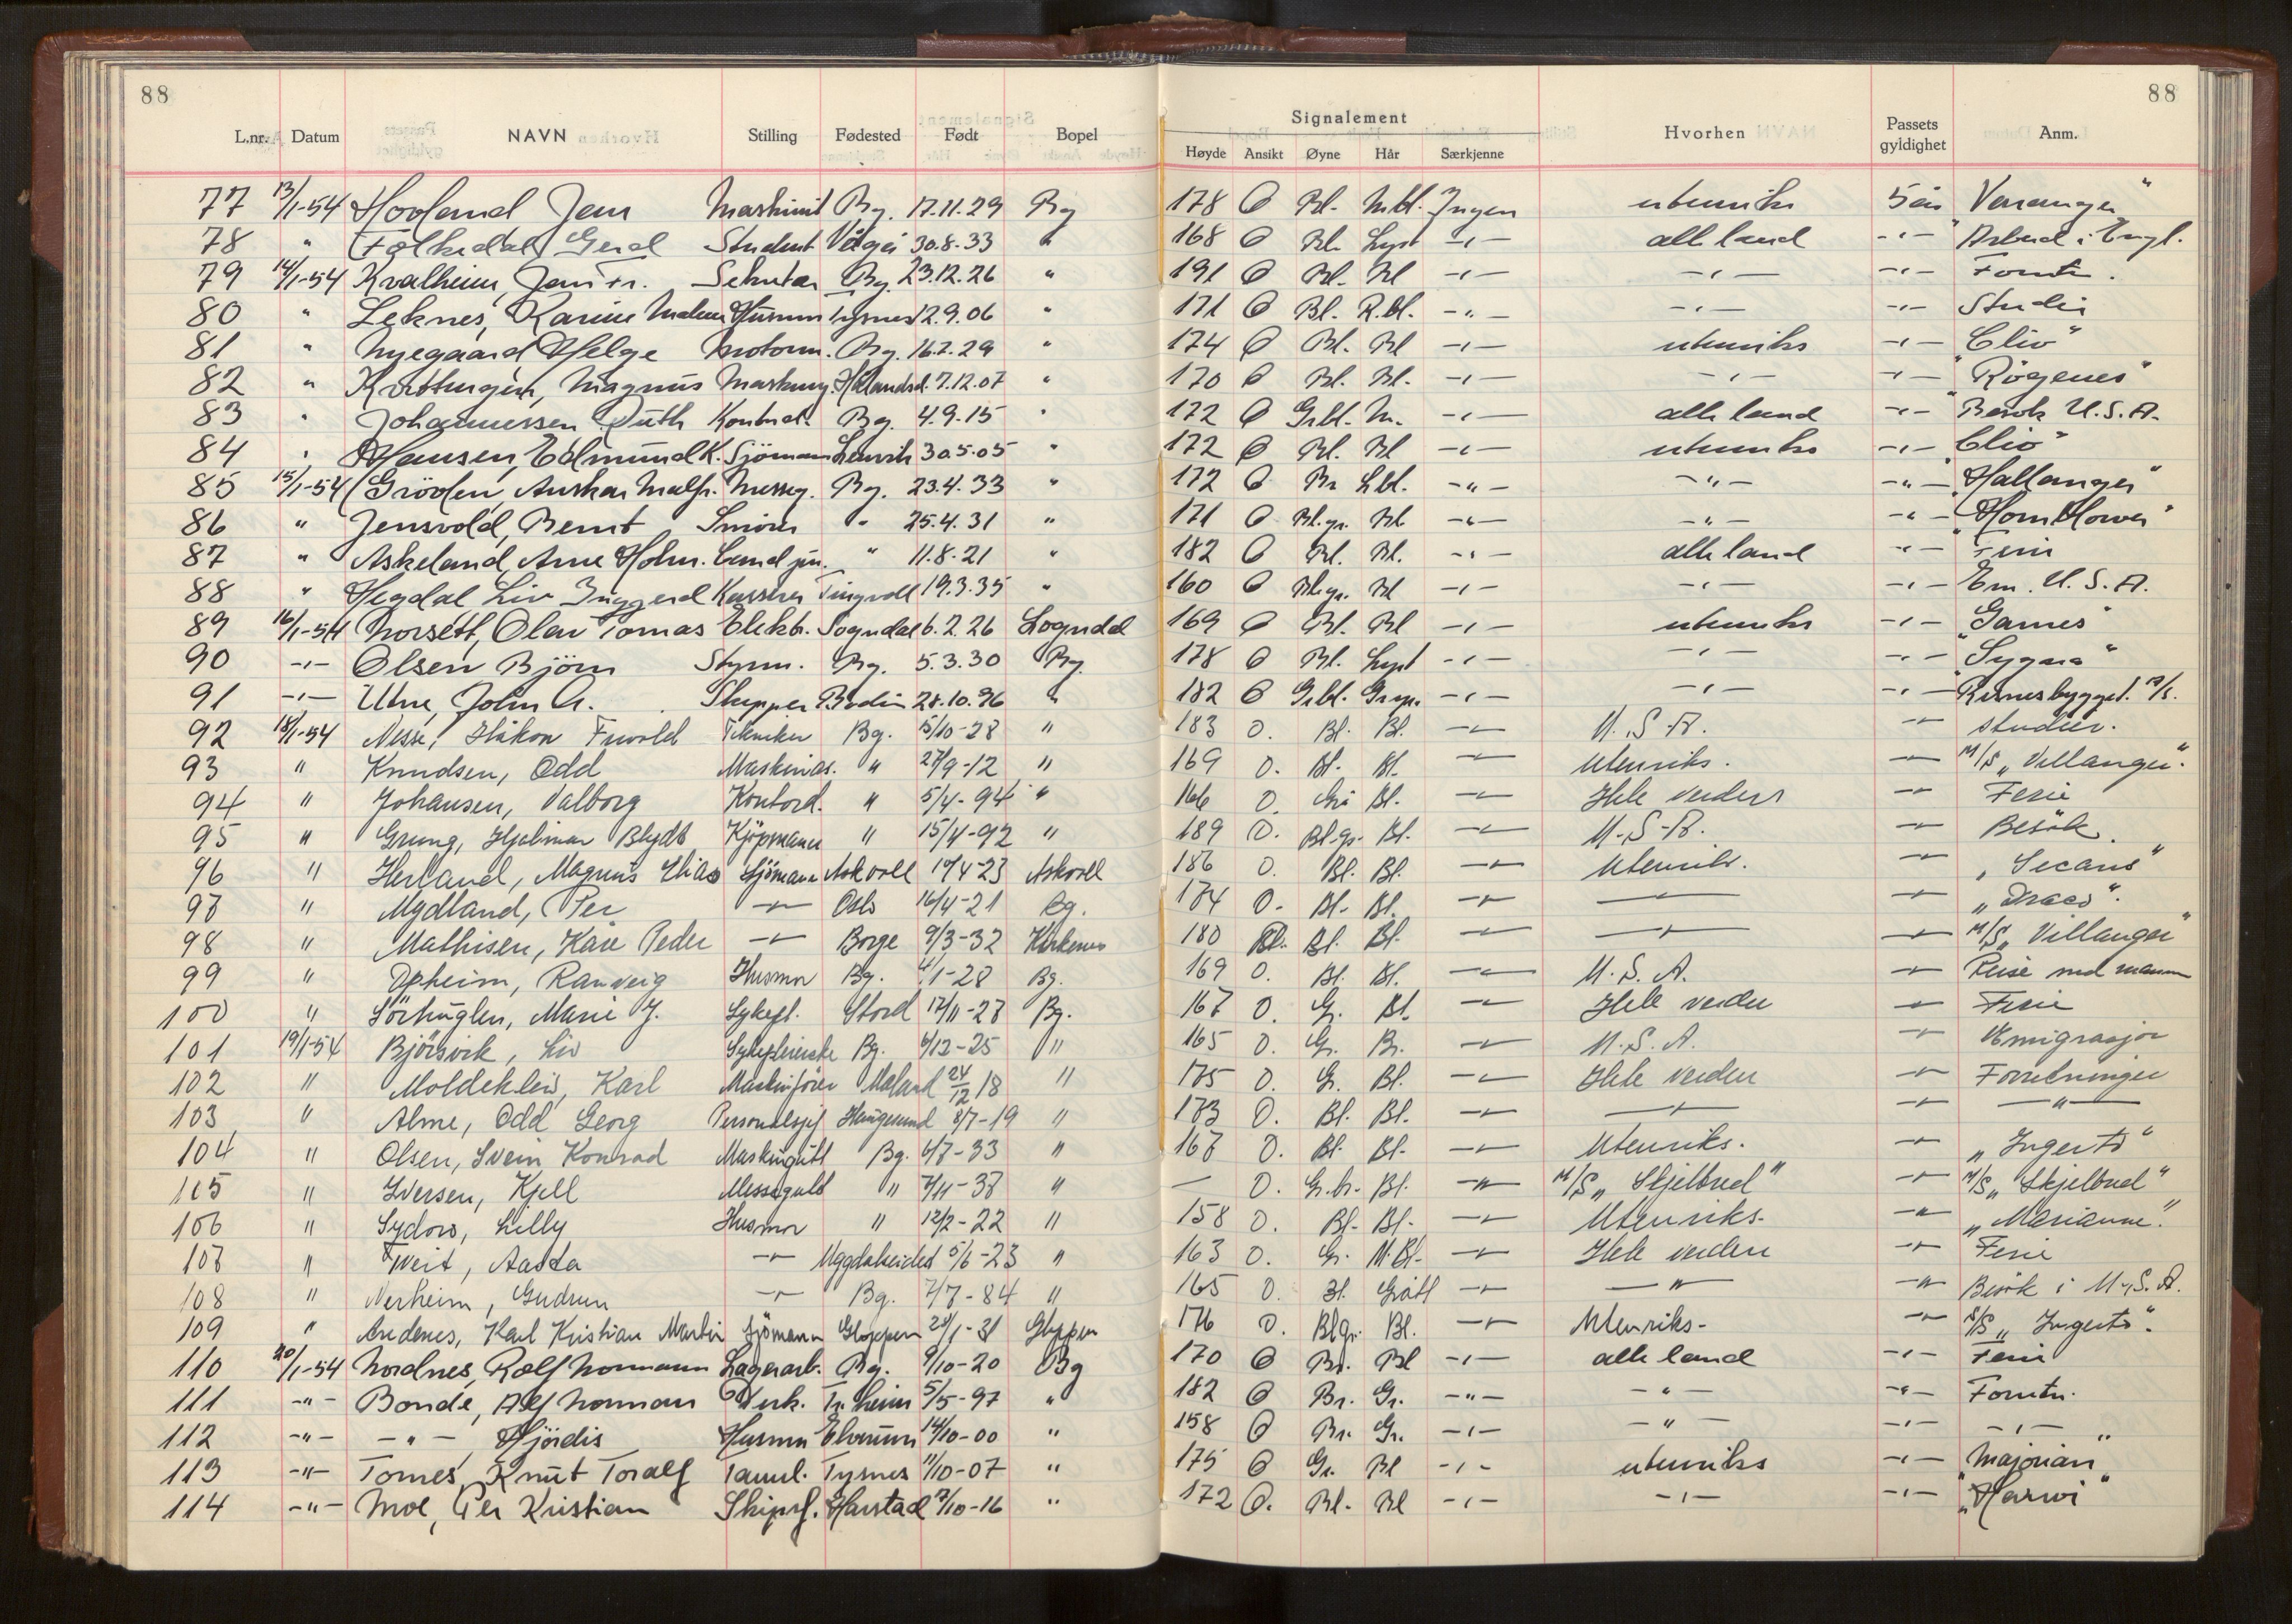 88 88
L.nr. Datum NAVN Stilling Fødested Født Bopel Signalement Høyde Ansikt Øyne Hår Særkjenne Hvorhen Passets gyldighet Anm.
77 13/1-54 Hovland Jens Maskinist Bg. 17.11.29 Bg 178 O Bl. M.bl. Ingen utenriks 5 år "Varanger"
78 " Folkedal Gerd Student 30.8.33 " 168 O Bl. Lyst -,- alle land -,- Arbeid i Engl.
79 14/1-54 Kvalheim, Jan Fr. Sekretær Bg. 23.12.26 " 191 O Bl. Bl -,- -,- -,- Forretn.
80 " Leknes, Karine Husmor Tysnes 12.9.06 " 171 O Bl. R.bl. -,- -,- -,- Studier
81 " Nyegaard Helge Motorm. Bg. 16.2.29 " 174 O Bl. Bl -,- utenriks -,- "Clio"
82 " Magnus 7.12.07 " 170 O Bl. Bl. -,- -,- -,- "Røgenes"
83 " Johannessen Ruth Kontord. Bg. 4.9.15 " 172 O Gr.bl. M. -,- alle land -,- Besøk U.S.A.
84 " Hansen, Edmund K. Sjömann Lenvik 30.5.05 " 172 O Bl. Bl -,- utenriks -,- "Clio"
85 15/1-54 Messeg. Bg. 23.4.33 " 172 O Br L.bl. -"- -"- -"- "Hallanger"
86 " Jensvold, Bernt Smörer " 25.4.31 " 171 O Bl.gr. Bl -"- -"- -"- "Hornblower"
87 " Askeland, Arne Holm. Cand jur. " 11.8.21 " 182 O Bl. Bl. -,- alle land -"- Ferie
88 " Hegdal Liv Inggerd Kasserer Tingvoll 19.3.35 " 160 O Bl.gr. Bl -,- -,- -,- Em. U.S.A.
89 16/1-54 Norsett, Olav Tomas Elektr. Sogndal 6.2.26 Sogndal 169 O Bl. Bl -,- utenriks -,- "Garnes"
90 -,- Olsen Björn Styrm. Bg. 5.3.30 Bg. 178 O Bl. Lyst -,- -,- -,- "Sygna"
91 -,- Utne, John A. Skipper Bodin 28.10.96 " 182 O Gr.bl. -,- -,- -,-
92 18/1-54 Nesse, Håkon Tekniker Bg. 15/10-28 " 183 O. Bl. Bl. -"- U.S.A. -"- studier.
93 " Knudsen, Odd Maskinas. " 27/9-12 " 169 O. Bl. Bl. -"- Utenriks. -"- M/S "Villanger".
94 " Johansen, Valborg Kontord. " 5/4-94 " 166 O. Grå Bl. -"- Hele verden -"- Ferie
95 " Grung, Hjalmar Blydt Kjöpmann " 15/4-92 " 189 O. Bl.gr. Bl. -"- U.S.A. -"- Besøk.
96 " Herland, Magnus Elias Sjömann Askvoll 19/4-23 Askvoll 186 O. Bl. Bl. -"- Utenriks. -"- "Secans"
97 " Mydland, Per -"- Oslo 16/4-21 Bg. 184 O. Bl. Bl. -"- -"- -"- "Draco".
98 " Mathisen, Kåre Peder -"- Borge 9/3-32 Kirkenes 180 Bl. Bl. Bl. -"- -"- -"- M/S "Villanger"
99 " Opheim, Ranveig Husmor Bg. 4/1-28 Bg. 169 O. Bl. Bl. -"- U.S.A. -"- Reise med mannen
100 " Sörhuglen, Marie J. Sykepl. Stord 12/11-27 Bg. 167 O. G. Bl. -"- Hele verden -"- Ferie
101 19/1-54 Björsvik, Liv Sykepleierske Bg. 6/12-25 " 165 O. Gr. Br. -"- U.S.A. -"- Emigrasjon
102 " Moldekleiv, Karl Maskinförer Meland 24/12 18 " 175 O. G. Bl. -"- Hele verden -"- Forretninger
103 " Alme, Odd Georg Personalsjef Haugesund 8/7-19 " 183 O. Bl. Bl. -"- -"- -"- -"-
104 " Olsen, Svein Konrad Maskingutt Bg. 6/7-33 " 167 O. Bl. Bl. -"- Utenriks. -"- "Ingerto"
105 " Iversen, Kjell Messegutt " 7/11-37 " — O. G.br. Bl. -"- M/S "Skjelbred" -"- M/S "Skjelbred"
106 " Sydow, Lilly Husmor " 12/2-22 " 158 O. Bl. Bl. -"- Utenriks. -"- "Marianne".
107 " Tveit, Aasta -"- Uggdalseidet 5/6-23 " 163 O. G. M.Bl. -"- Hele verden -"- Ferie
108 " Nerheim, Gudrun -"- Bg. 7/7-84 " 165 O. Bl. Grått -"- -"- -"- Besök i U.S.A.
109 " Karl Kristian Martin Sjömann Gloppen 28/1-31 Gloppen 176 O. Bl.gr. Bl. -"- Utenriks. -"- S/S "Ingerto".
110 20/1-54 Nordnes, Rolf Normann Lagerarb. Bg. 9/10-20 Bg 170 O Br. Bl -,- alle land -,- Ferie
111 -"- Bonde, Alf Norman Tr.heim 5/5-97 " 182 O Br. Gr. -"- -"- -"- Forretn.
112 -"- -"- Hjördis Husmor Elverum 14/10-00 " 158 O Br. Gr. -,- -"- -,- -,-
113 -"- Tornes, Knut Toralf Tysnes 11/10-07 " 175 O Gr. Bl -,- utenriks -,- "Majorian"
114 -"- Moe, Per Kristian Skipsf. Harstad 12/10-16 " 172 O. Bl. Bl -,- -,- -,- "Harvi"